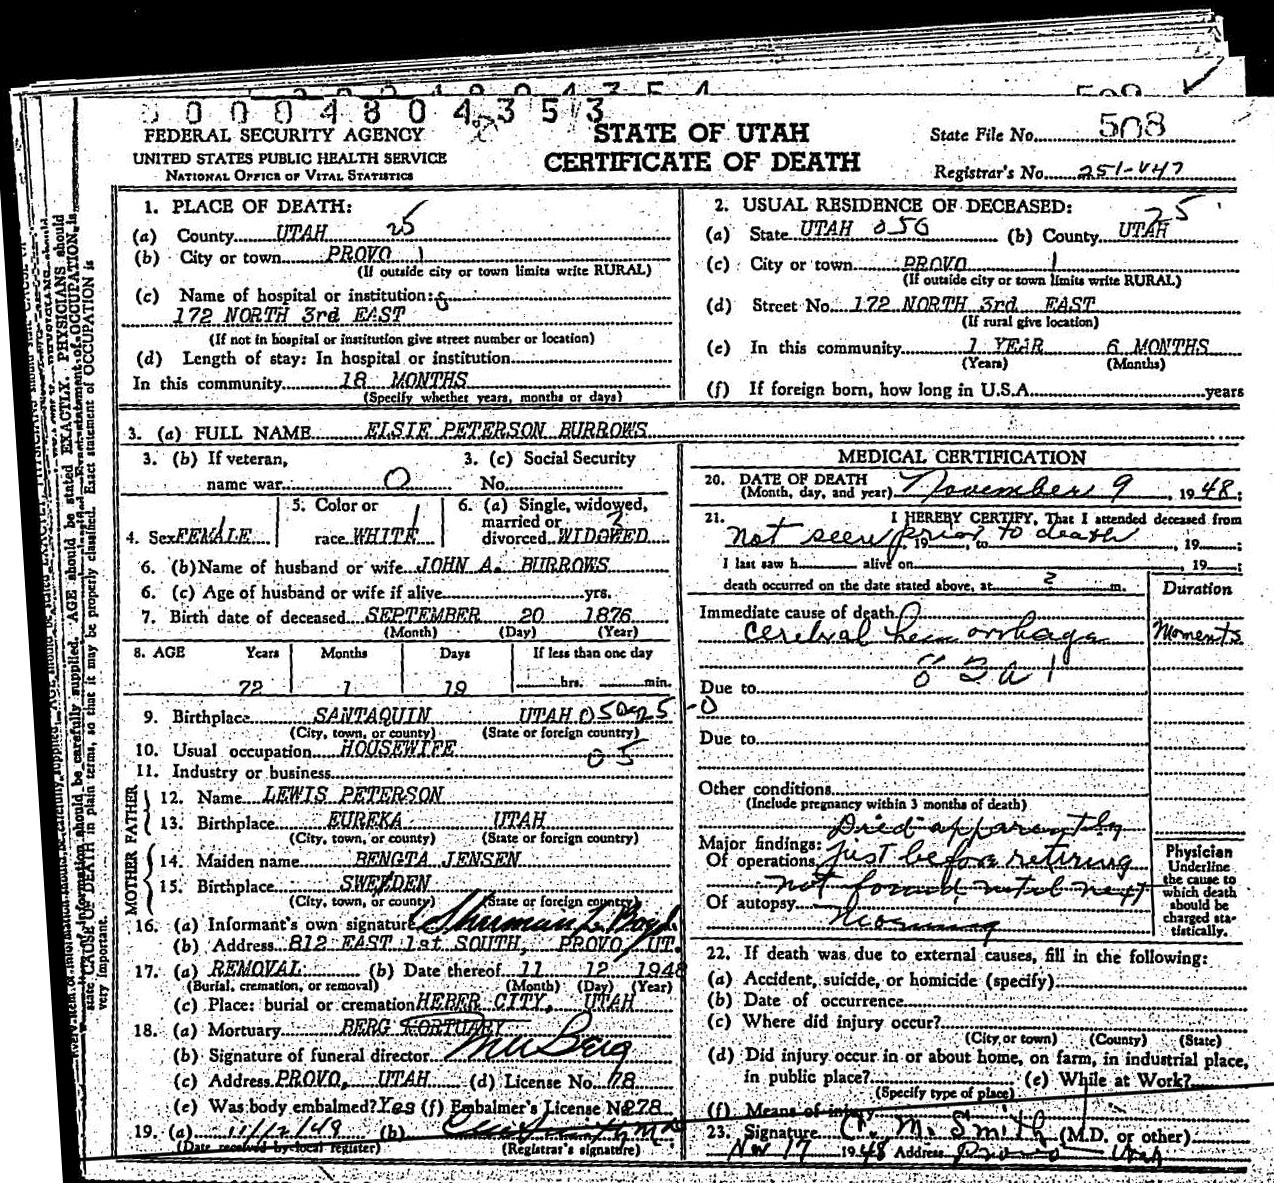 0004804353
FEDERAL SECURITY AGENCY
UNITED STATES PUBLIC HEALTH SERVICE
NATIONAL OFFICE OF VITAL STATISTICS
STATE OF UTAH
CERTIFICATE OF DEATH
State File No. 508
Registrar's No. 251-447
1. PLACE OF DEATH:
(a) County UTAH 25
(b) City or town PROVO 1
(If outside city or town limits write RURAL)
(c) Name of hospital or institution:
172 NORTH 3rd EAST
(If not in hospital or institution give street number or location)
(d) Length of stay: In hospital or institution
In this community 18 MONTHS
(Specify whether years, months or days)
2. USUAL RESIDENCE OF DECEASED:
(a) State UTAH 050 (b) County UTAH 25
(c) City or town PROVO 1
(If outside city or town limits write RURAL)
(d) Street No. 172 NORTH 3rd EAST
(If rural give location)
(e) In this community 1 YEAR 6 MONTHS
(Years) (Months)
(f) If foreign born, how long in U.S.A. years
3. (a) FULL NAME ELSIE PETERSON BURROWS
3. (b) If veteran, 3. (c) Social Security
name war 0 No.
5. Color or 6. (a) Single, widowed,
married or 2
4. Sex FEMALE race WHITE 1 divorced WIDOWED
6. (b) Name of husband or wife JOHN A. BURROWS
6. (c) Age of husband or wife if alive yrs.
7. Birth date of deceased SEPTEMBER 20 1876
(Month) (Day) (Year)
8. AGE Years Months Days If less than one day
72 1 19 hrs. min.
9. Birthplace SANTAQUIN UTAH
(City, town, or county) (State or foreign country)
10. Usual occupation HOUSEWIFE 05
11. Industry or business
FATHER
12. Name LEWIS PETERSON
13. Birthplace EUREKA UTAH
(City, town, or county) (State or foreign country)
MOTHER
14. Maiden name BENGTA JENSEN
15. Birthplace SWEEDEN
(City, town, or county) (State or foreign country)
16. (a) Informant's own signature Sherman L. Boyd
(b) Address 812 EAST 1st SOUTH, PROVO, UT.
17. (a) REMOVAL (b) Date thereof 11 12 1948
(Burial, cremation, or removal) (Month) (Day) (Year)
(c) Place: burial or cremation HEBER CITY, UTAH
18. (a) Mortuary BERG MORTUARY
(b) Signature of funeral director Berg
(c) Address PROVO, UTAH (d) License No. 78
(e) Was body embalmed? Yes (f) Embalmer's License No. 278
19. (a) 11/12/48 (b)
(Date received by local register) (Registrar's signature)
MEDICAL CERTIFICATION
20. DATE OF DEATH
(Month, day, and year) November 9, 1948;
21. I HEREBY CERTIFY, That I attended deceased from
Not seen prior to death, 19 , to , 19 ;
I last saw h alive on , 19 ;
death occurred on the date stated above, at ? m.
Duration
Immediate cause of death
Cerebral hemorrhage Moments
83a1
Due to
Due to
Other conditions
(Include pregnancy within 3 months of death)
Died apparently
Major findings:
Of operations just before retiring
not found until next
Of autopsy morning
Physician
Underline
the cause to
which death
should be
charged sta-
tistically.
22. If death was due to external causes, fill in the following:
(a) Accident, suicide, or homicide (specify)
(b) Date of occurrence
(c) Where did injury occur?
(City or town) (County) (State)
(d) Did injury occur in or about home, on farm, in industrial place,
in public place? (e) While at Work?
(Specify type of place)
(f) Means of injury
23. Signature C. M. Smith (M.D. or other)
Nov 17 1948 Address Provo Utah
AGE should be stated EXACTLY. PHYSICIANS should
state CAUSE OF DEATH in plain terms, so that it may be properly classified. Exact statement of OCCUPATION is
very important.